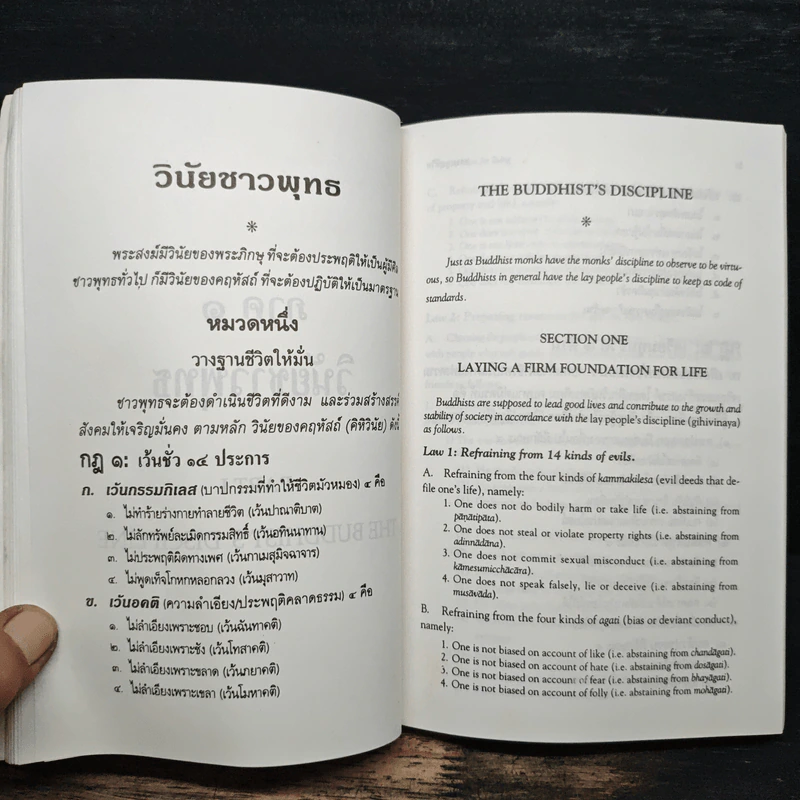 วินัยชาวพุทธ
*
พระสงฆ์มีวินัยของพระภิกษุ ที่จะต้องประพฤติให้เป็นผู้มีศีล
ชาวพุทธทั่วไป ก็มีวินัยของคฤหัสถ์ ที่จะต้องปฏิบัติให้เป็นมาตรฐาน
หมวดหนึ่ง
วางฐานชีวิตให้มั่น
ชาวพุทธจะต้องดำเนินชีวิตที่ดีงาม และร่วมสร้างสรรค์
สังคมให้เจริญมั่นคง ตามหลัก วินัยของคฤหัสถ์ (คิหิวินัย) ดังนี้
กฎ ๑: เว้นชั่ว ๑๔ ประการ
ก. เว้นกรรมกิเลส (บาปกรรมที่ทำให้ชีวิตมัวหมอง) ๔ คือ
๑. ไม่ทำร้ายร่างกายทำลายชีวิต (เว้นปาณาติบาต)
๒. ไม่ลักทรัพย์ละเมิดกรรมสิทธิ์ (เว้นอทินนาทาน)
๓. ไม่ประพฤติผิดทางเพศ (เว้นกาเมสุมิจฉาจาร)
๔. ไม่พูดเท็จโกหกหลอกลวง (เว้นมุสาวาท)
ข. เว้นอคติ (ความลำเอียง/ประพฤติคลาดธรรม) ๔ คือ
๑. ไม่ลำเอียงเพราะชอบ (เว้นฉันทาคติ)
๒. ไม่ลำเอียงเพราะชัง (เว้นโทสาคติ)
๓. ไม่ลำเอียงเพราะขลาด (เว้นภยาคติ)
๔. ไม่ลำเอียงเพราะเขลา (เว้นโมหาคติ)
THE BUDDHIST'S DISCIPLINE
*
Just as Buddhist monks have the monks' discipline to observe to be virtu-
ous, so Buddhists in general have the lay people's discipline to keep as code of
standards.
SECTION ONE
LAYING A FIRM FOUNDATION FOR LIFE
Buddhists are supposed to lead good lives and contribute to the growth and
stability of society in accordance with the lay people's discipline (gihivinaya)
as follows.
Law 1: Refraining from 14 kinds of evils.
A. Refraining from the four kinds of kammakilesa (evil deeds that de-
file one's life), namely:
1. One does not do bodily harm or take life (i.e. abstaining from
pāṇātipāta).
2. One does not steal or violate property rights (i.e. abstaining from
adinnādāna).
3. One does not commit sexual misconduct (i.e. abstaining from
kāmesumicchācāra).
4. One does not speak falsely, lie or deceive (i.e. abstaining from
musāvāda).
B. Refraining from the four kinds of agati (bias or deviant conduct),
namely:
1. One is not biased on account of like (i.e. abstaining from chandāgati).
2. One is not biased on account of hate (i.e. abstaining from dosāgati).
3. One is not biased on account of fear (i.e. abstaining from bhayāgati).
4. One is not biased on account of folly (i.e. abstaining from mohāgati).